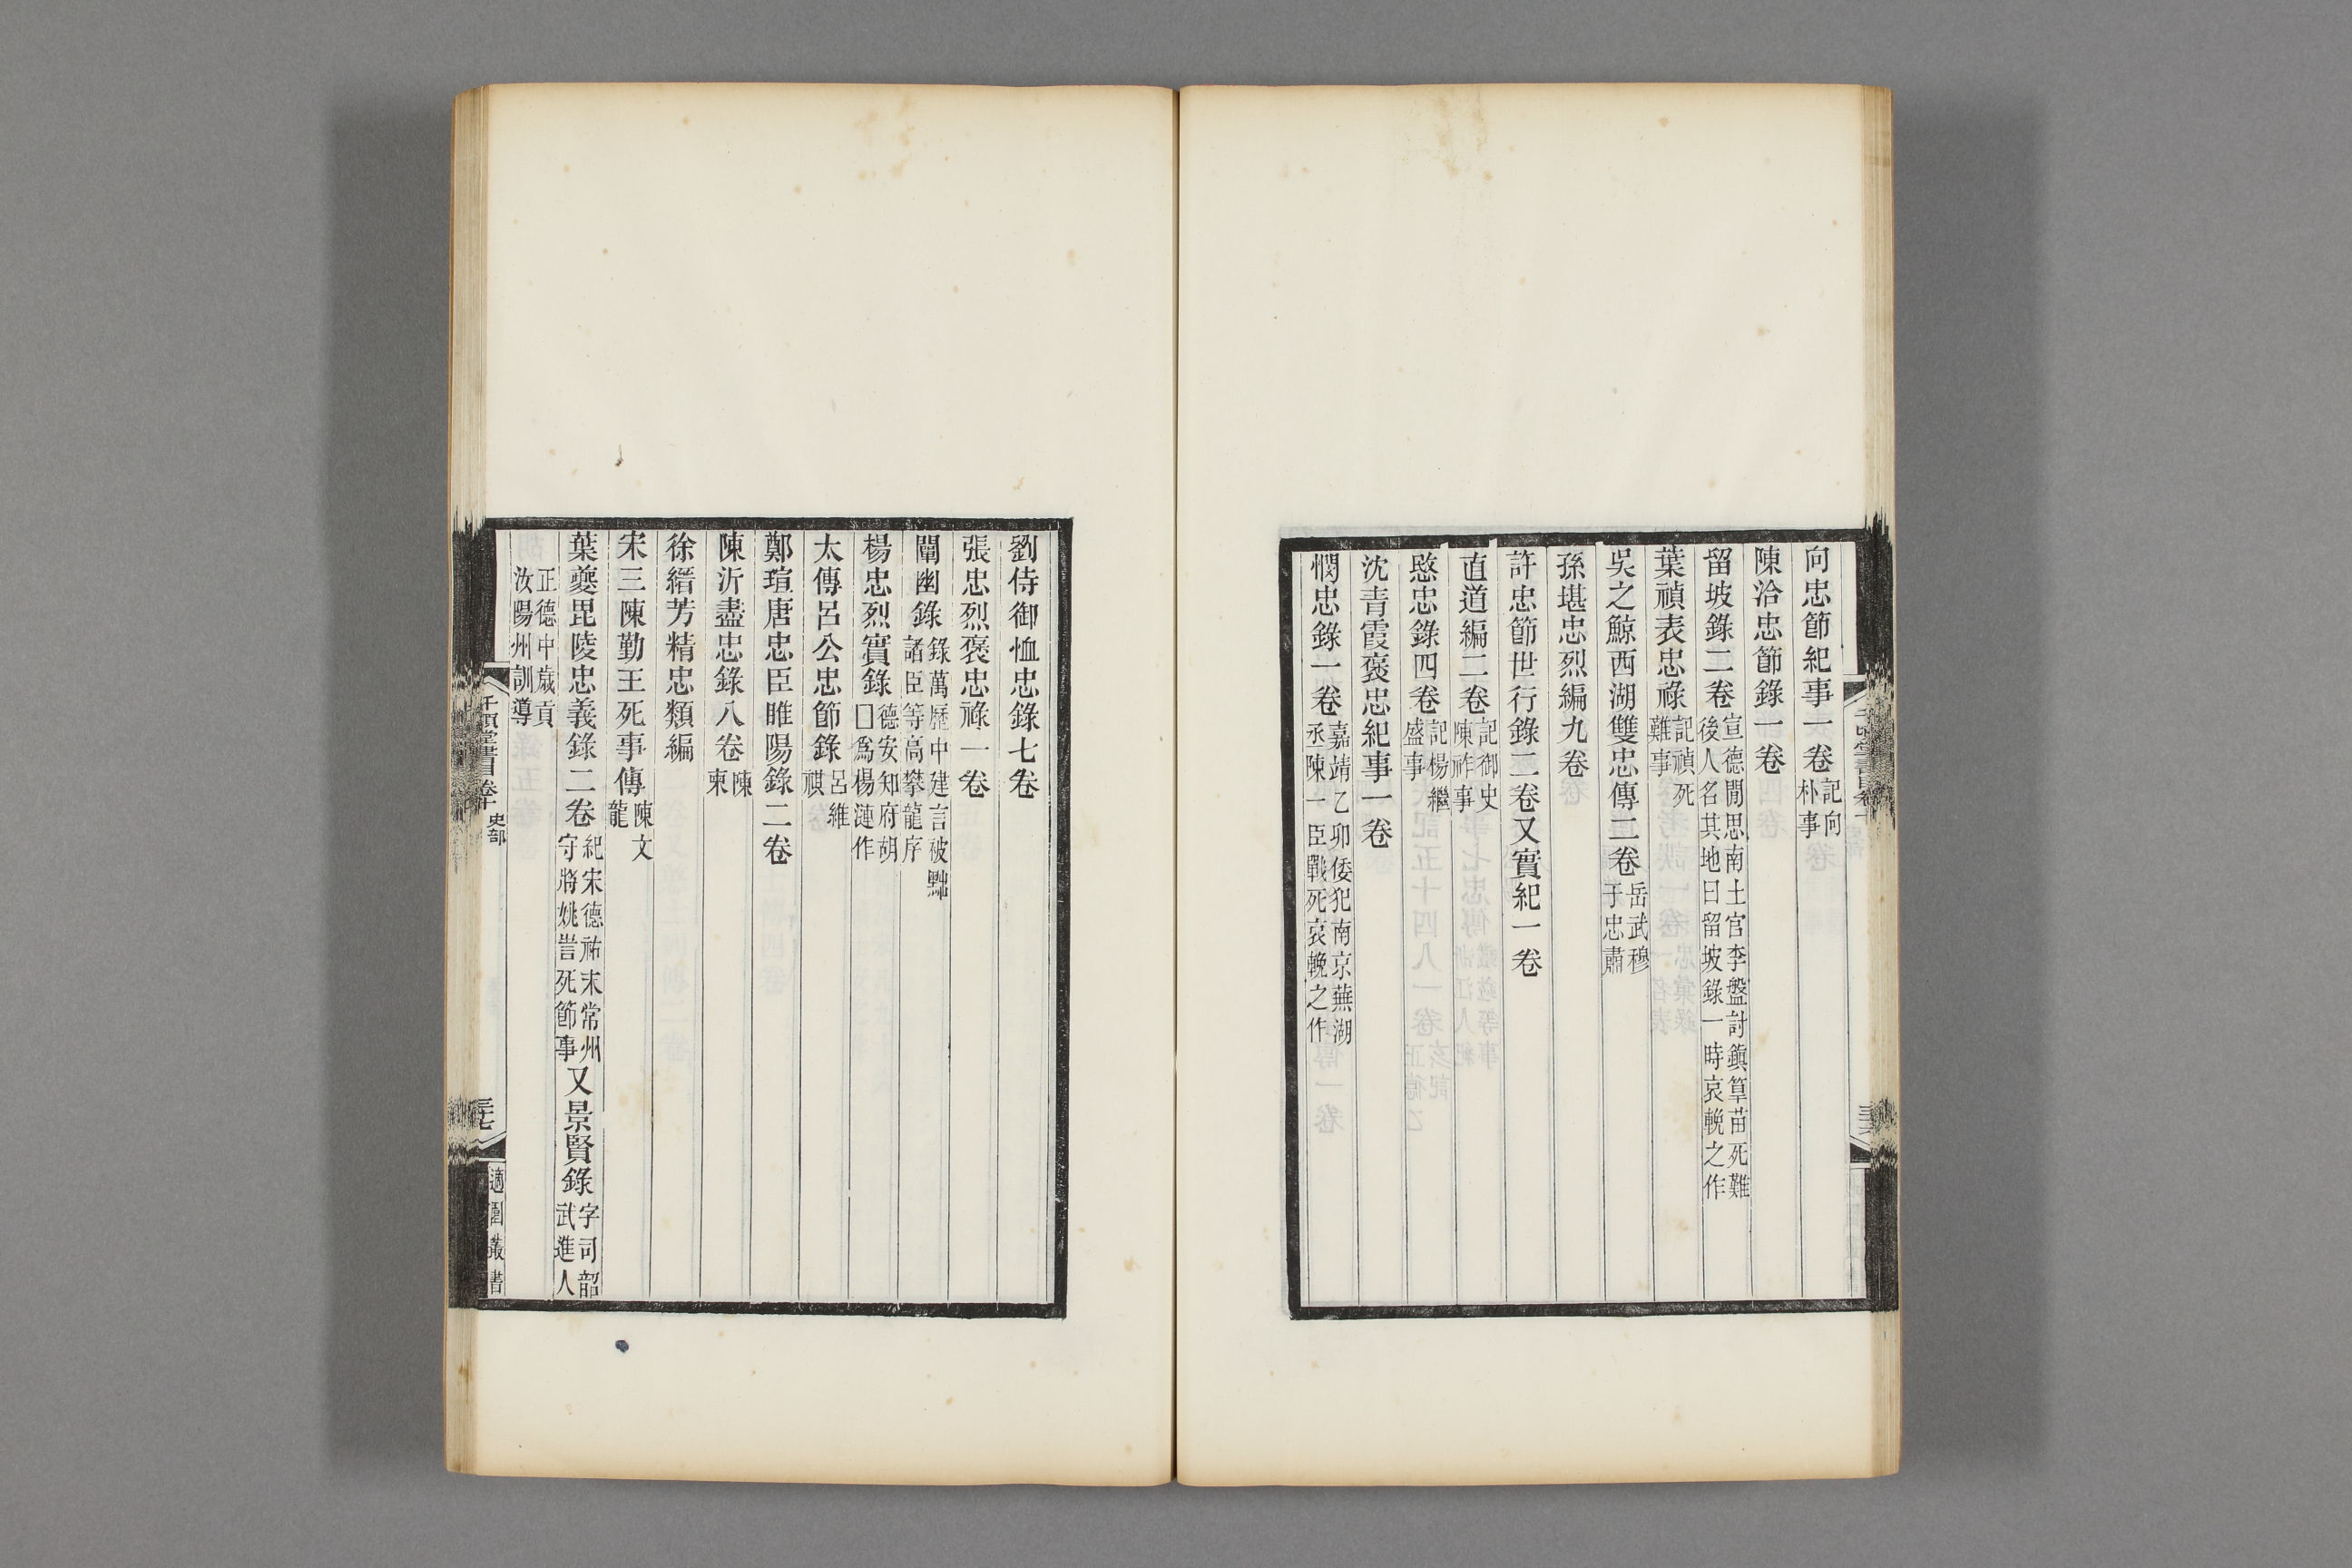 向忠節紀事一卷記向朴事
陳洽忠節錄一卷
留坡錄二卷宣德間思南土官李盤討鎮筸苗死難後人名其地曰留坡錄一時哀輓之作
葉禎表忠祿記禎死難事
吳之鯨西湖雙忠傳二卷岳武穆于忠肅
孫堪忠烈編九卷
許忠節世行錄二卷又實紀一卷
直道編二卷記御史陳祚事
愍忠錄四卷記楊繼盛事
沈青霞褒忠紀事一卷
憫忠錄一卷嘉靖乙卯倭犯南京蕪湖丞陳一臣戰死哀輓之作
劉侍御恤忠錄七卷
張忠烈褒忠祿一卷
闡幽錄錄萬歷中建言被黜諸臣等高攀龍序
楊忠烈實錄德安知府胡囗爲楊漣作
太傳呂公忠節錄呂維祺
鄭瑄唐忠臣睢陽錄二卷
陳沂盡忠錄八卷陳東
徐縉芳精忠類編
宋三陳勤王死事傳陳文龍
葉夔毘陵忠義錄二卷紀宋德祐末常州守將姚訔死節事又景賢錄字司韶武進人
正德中歲貢汝陽州訓導
千頃堂書目卷十 史部
三七
適園叢書